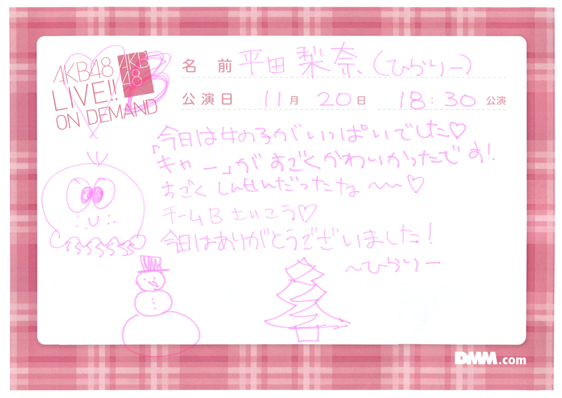 AKB48
LIVE!!
ON DEMAND
AKB
48
名前 平田 梨奈 (ひらりー)
公演日 11月 20日 18:30 公演
「今日は女の子がいっぱいでした♡
キャー」がすごくかわいかったです!
すごくしんせんだったな 〜〜♡
チームB さいこう♡
今日はありがとうございました!
〜ひらりー
DMM.com